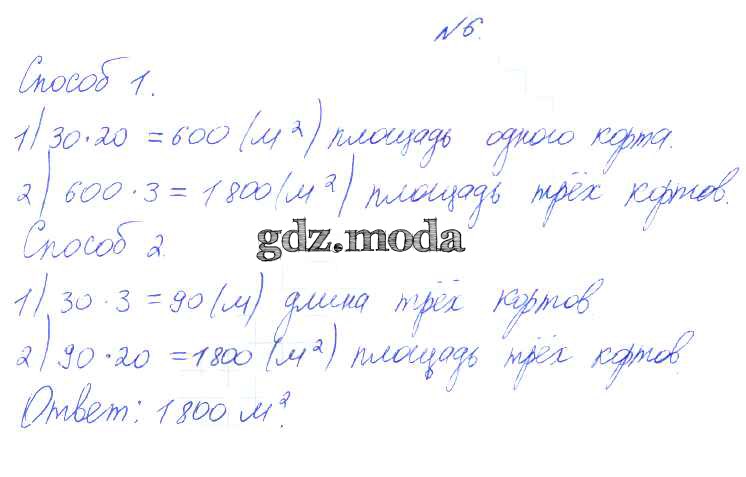 №6.
Способ 1.
1) 30·20 = 600 (м²) площадь одного корта.
2) 600·3 = 1800 (м²) площадь трёх кортов.
Способ 2.
gdz.moda
1) 30·3 = 90 (м) длина трёх кортов
2) 90·20 = 1800 (м²) площадь трёх кортов.
Ответ: 1800 м².